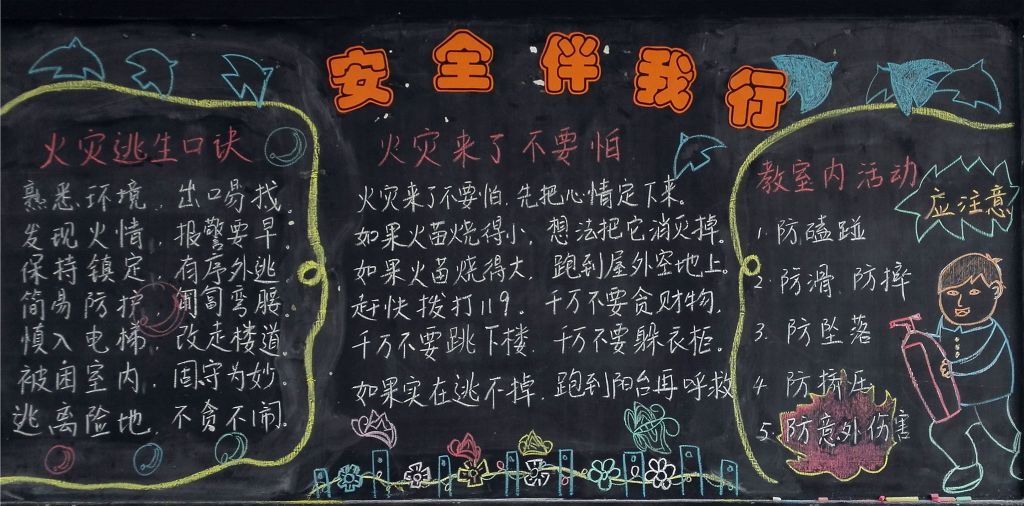 安全伴我行
火灾逃生口诀
熟悉环境，出口易找。
发现火情，报警要早。
保持镇定，有序外逃。
简易防护，匍匐弯腰。
慎入电梯，改走楼道。
被困室内，固守为妙。
逃离险地，不贪不闹。
火灾来了不要怕
火灾来了不要怕，先把心情定下来。
如果火苗烧得小，想法把它消灭掉。
如果火苗烧得大，跑到屋外空地上。
赶快拨打119。千万不要贪财物，
千万不要跳下楼，千万不要躲衣柜。
如果实在逃不掉，跑到阳台再呼救
教室内活动
应注意
1 防磕碰
2 防滑、防摔
3. 防坠落
4 防挤压
5. 防意外伤害